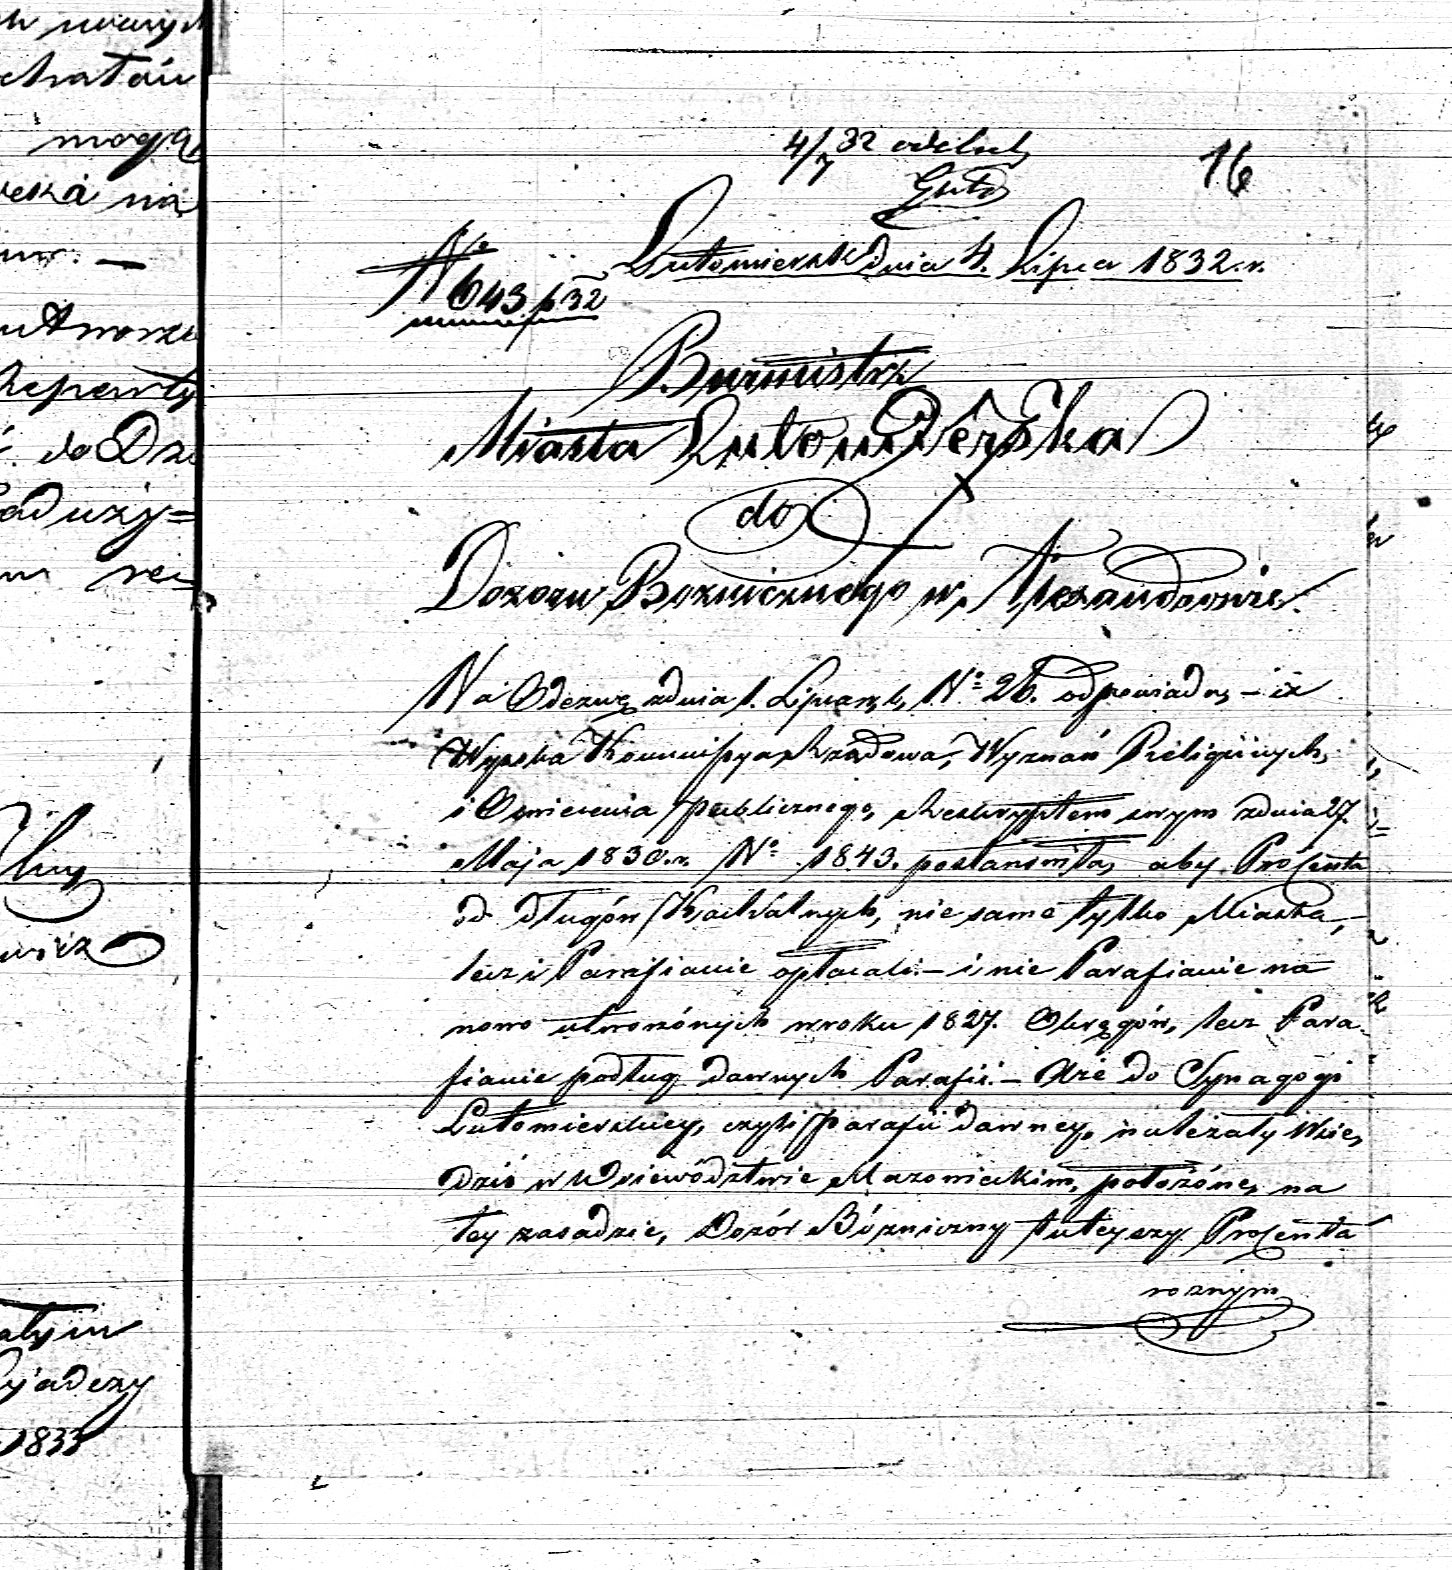 mogą
na
do Dz
1833
4/7 32
16
Lutomiersk dnia 4. Lipca 1832. r.
No 643 / 32
Burmistrz
Miasta Lutomierska
do
Dozoru Boznicznego w. Alexandrowie.
Na Odezwę z dnia 1. Lipca r. b. No 26. odpowiada, – iż
Wysoka Kommissya Rządowa, Wyznań Religiinych,
i Oswiecenia publicznego, Reskryptem swym z dnia 27.
Maja 1830. r. No 1843. postanowiła, aby Procenta
od długów Kachalnych, nie same tylko Miasta, –
lecz i Parafianie opłacali. – i nie Parafianie na
nowo utworzónych w roku 1827. Okręgów, lecz Para
fianie podług dawnych Parafii. – Że do Synagogi
Lutomierskiey, czyli parafii dawney, należały Wsie,
dziś w Woiewództwie Mazowieckim, położóne, na
tey zasadzie, Dozór Bóżniczny tuteyszy Procenta